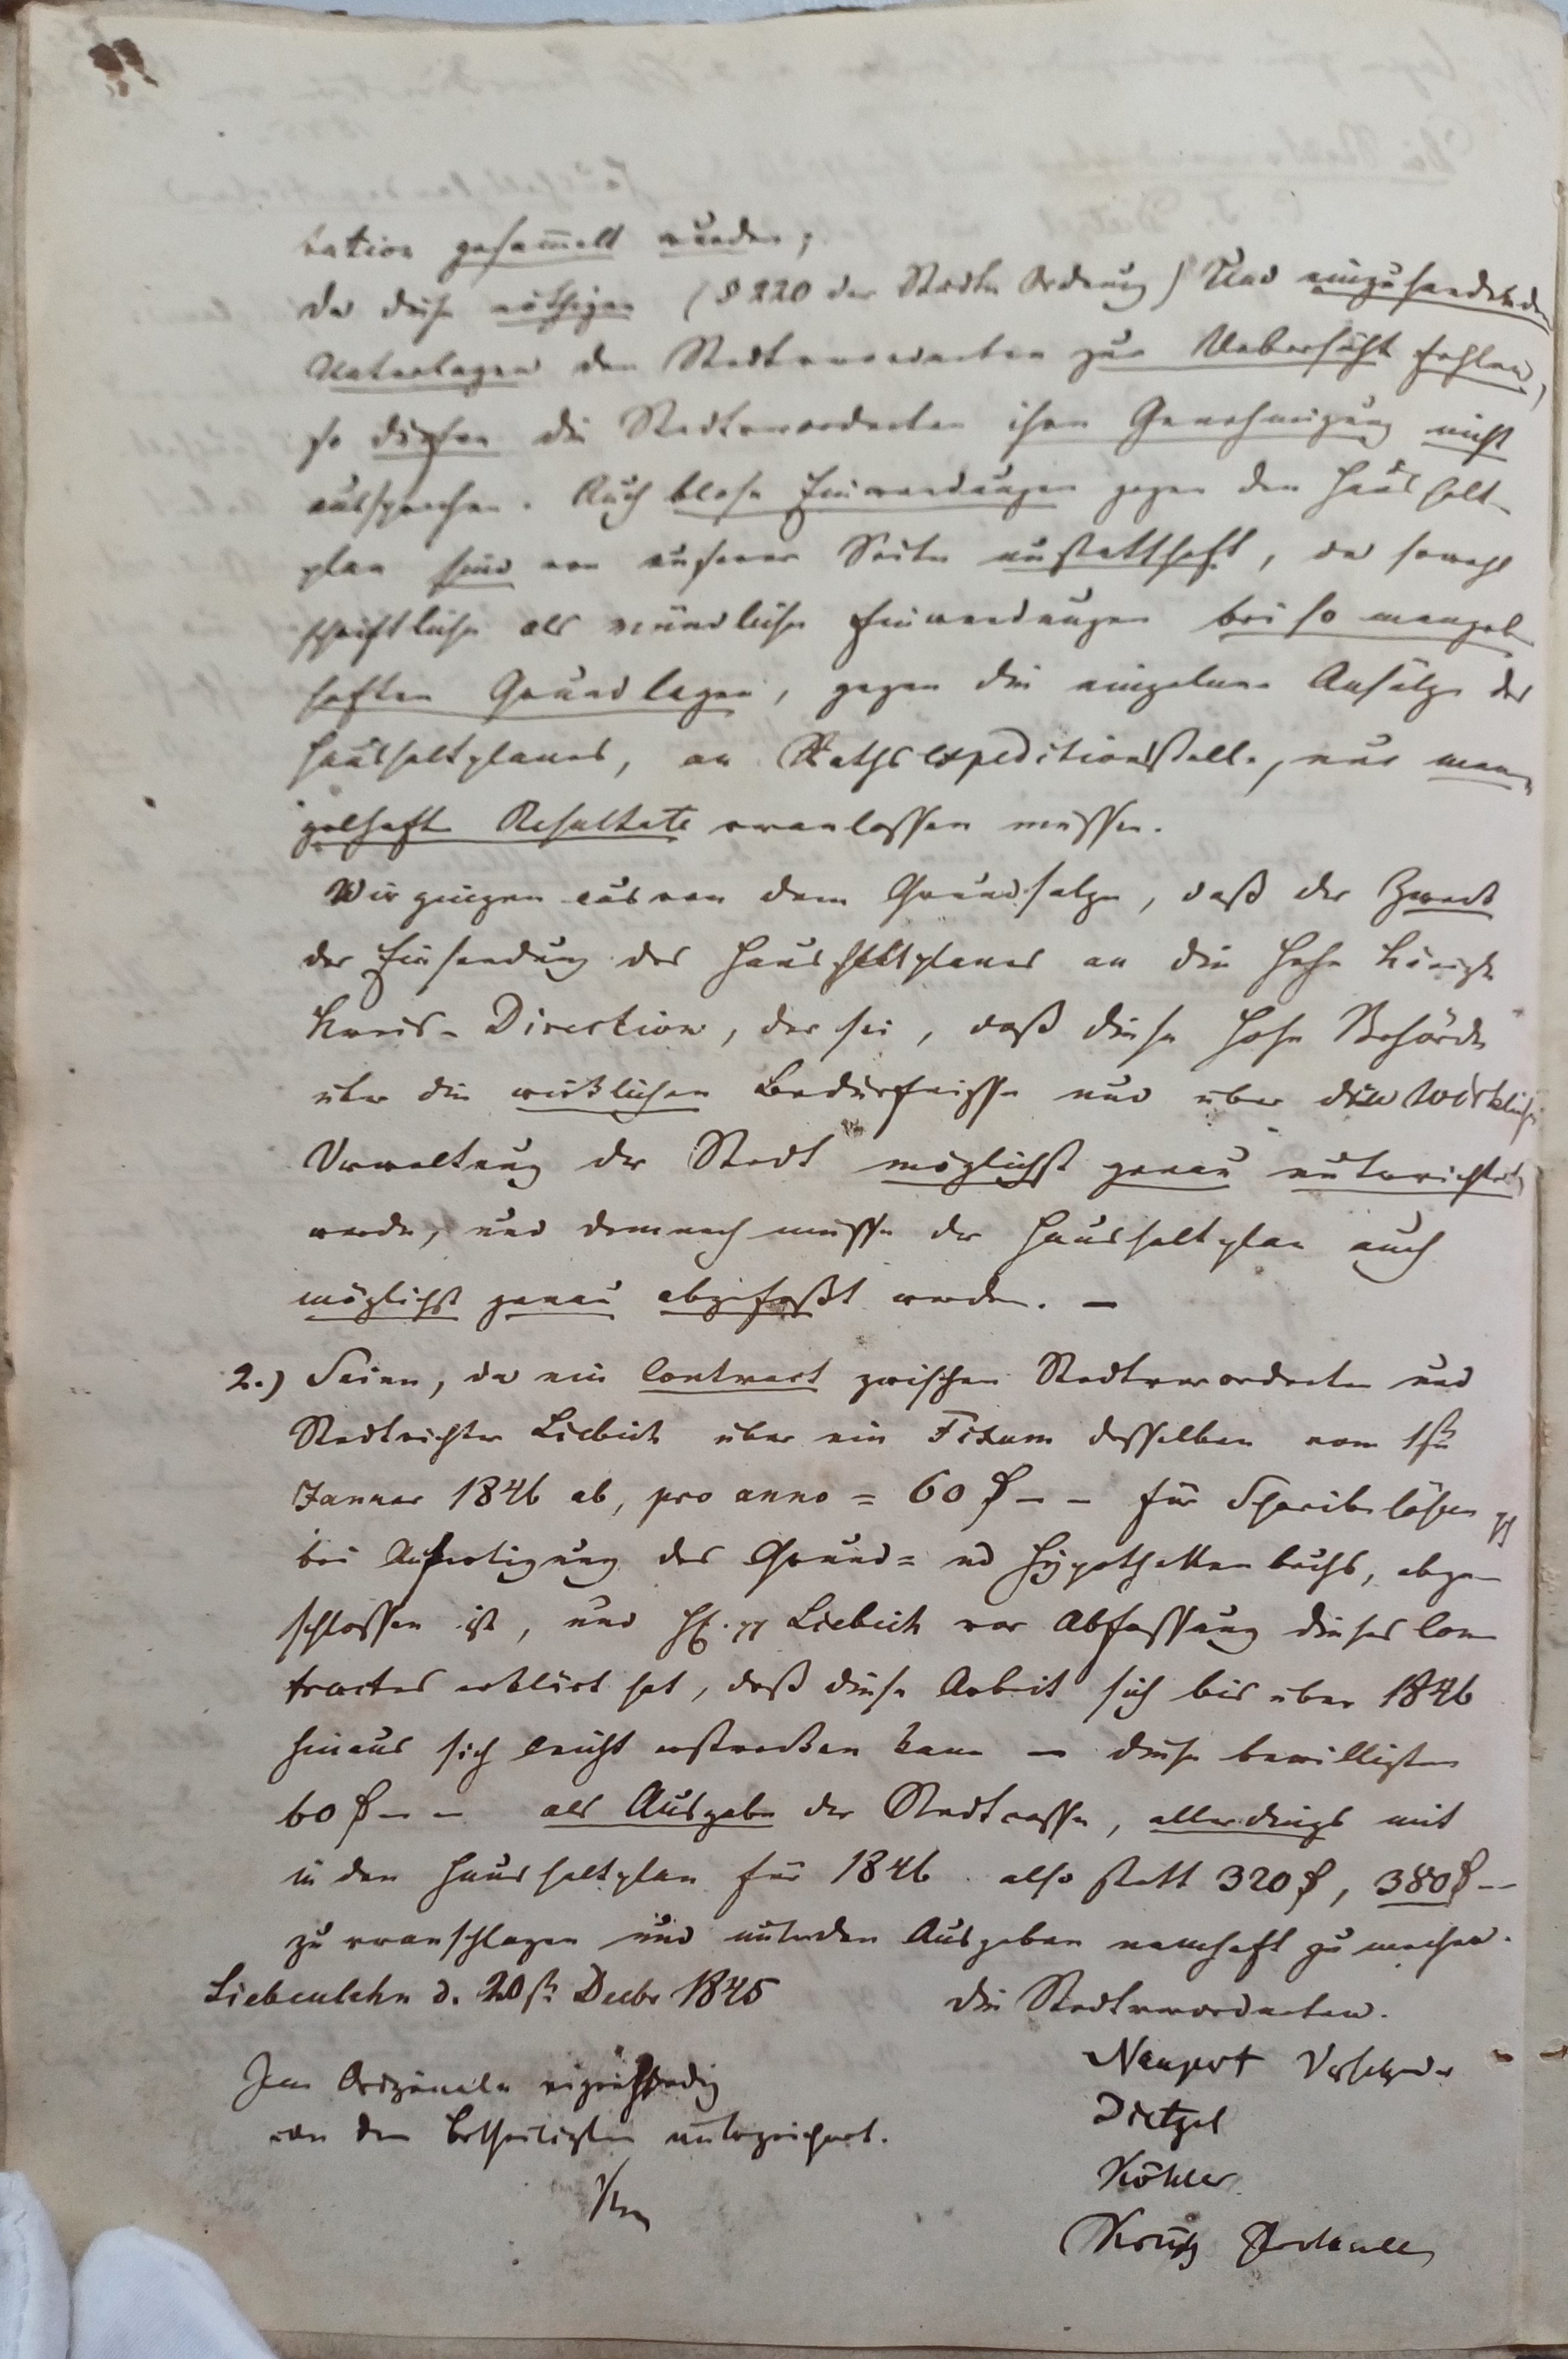 tation gesammelt werden;
Da diese nöthigen (§ 220 der Städte Ordnung) Und einzusendenden
Unterlagen den Stadtverordneten zur Uebersicht fehlen,
so dürfen die Stadtverordneten ihre Genehmigung nicht
aussprechen. Auch blose Einwendungen gegen den Haushalt-
plan sind von unserer Seite unstatthaft, da sowohl
schriftliche als mündliche Einwendungen bei so mangel-
haften Grundlagen, gegen die einzelnen Ansätze des
Haushaltplanes, an Rathsexpeditionsstelle, nur man-
gelhafte Resultate veranlassen müssen.
Wir gingen aus von dem Grundsatze, daß der Zweck
der Einsendung des Haushaltplanes an die Hohe Königl.
Kreis-Direction, der sei, daß diese Hohe Behörde
über die wirklichen Bedürfnisse und über die wirkliche
Verwaltung der Stadt möglichst genau unterrichtet
werde, und demnach müsse der Haushaltplan auch
möglichst genau abgefaßt werden. –
2.) Seien, da ein Contract zwischen Stadtverordneten und
Stadtrichter Liebich über ein Fixum desselben vom 1sten
Januar 1846 ab, pro anno = 60 ₰ – – für Schreibelöhne pp
bei Anfertigung des Grund= und Hypothekenbuchs, abge-
schlossen ist, und H. pp Liebich vor Abfassung dieses Con-
tractes erklärt hat, daß diese Arbeit sich bis über 1846
hinaus sich leicht erstrecken kann – diese bewilligten
60 ₰ – – als Ausgabe der Stadtcasse, allerdings mit
in den Haushaltplan für 1846 also statt 320 ₰, 380 ₰ –
zu veranschlagen und unter den Ausgaben namhaft zu machen.
Liebenlehn d. 20st. Decbr 1845
Die Stadtverordneten.
Neupert Vorstand
Dietzel
Köhler
Im Originale eigenhändig
von den Betheiligten unterzeichnet.